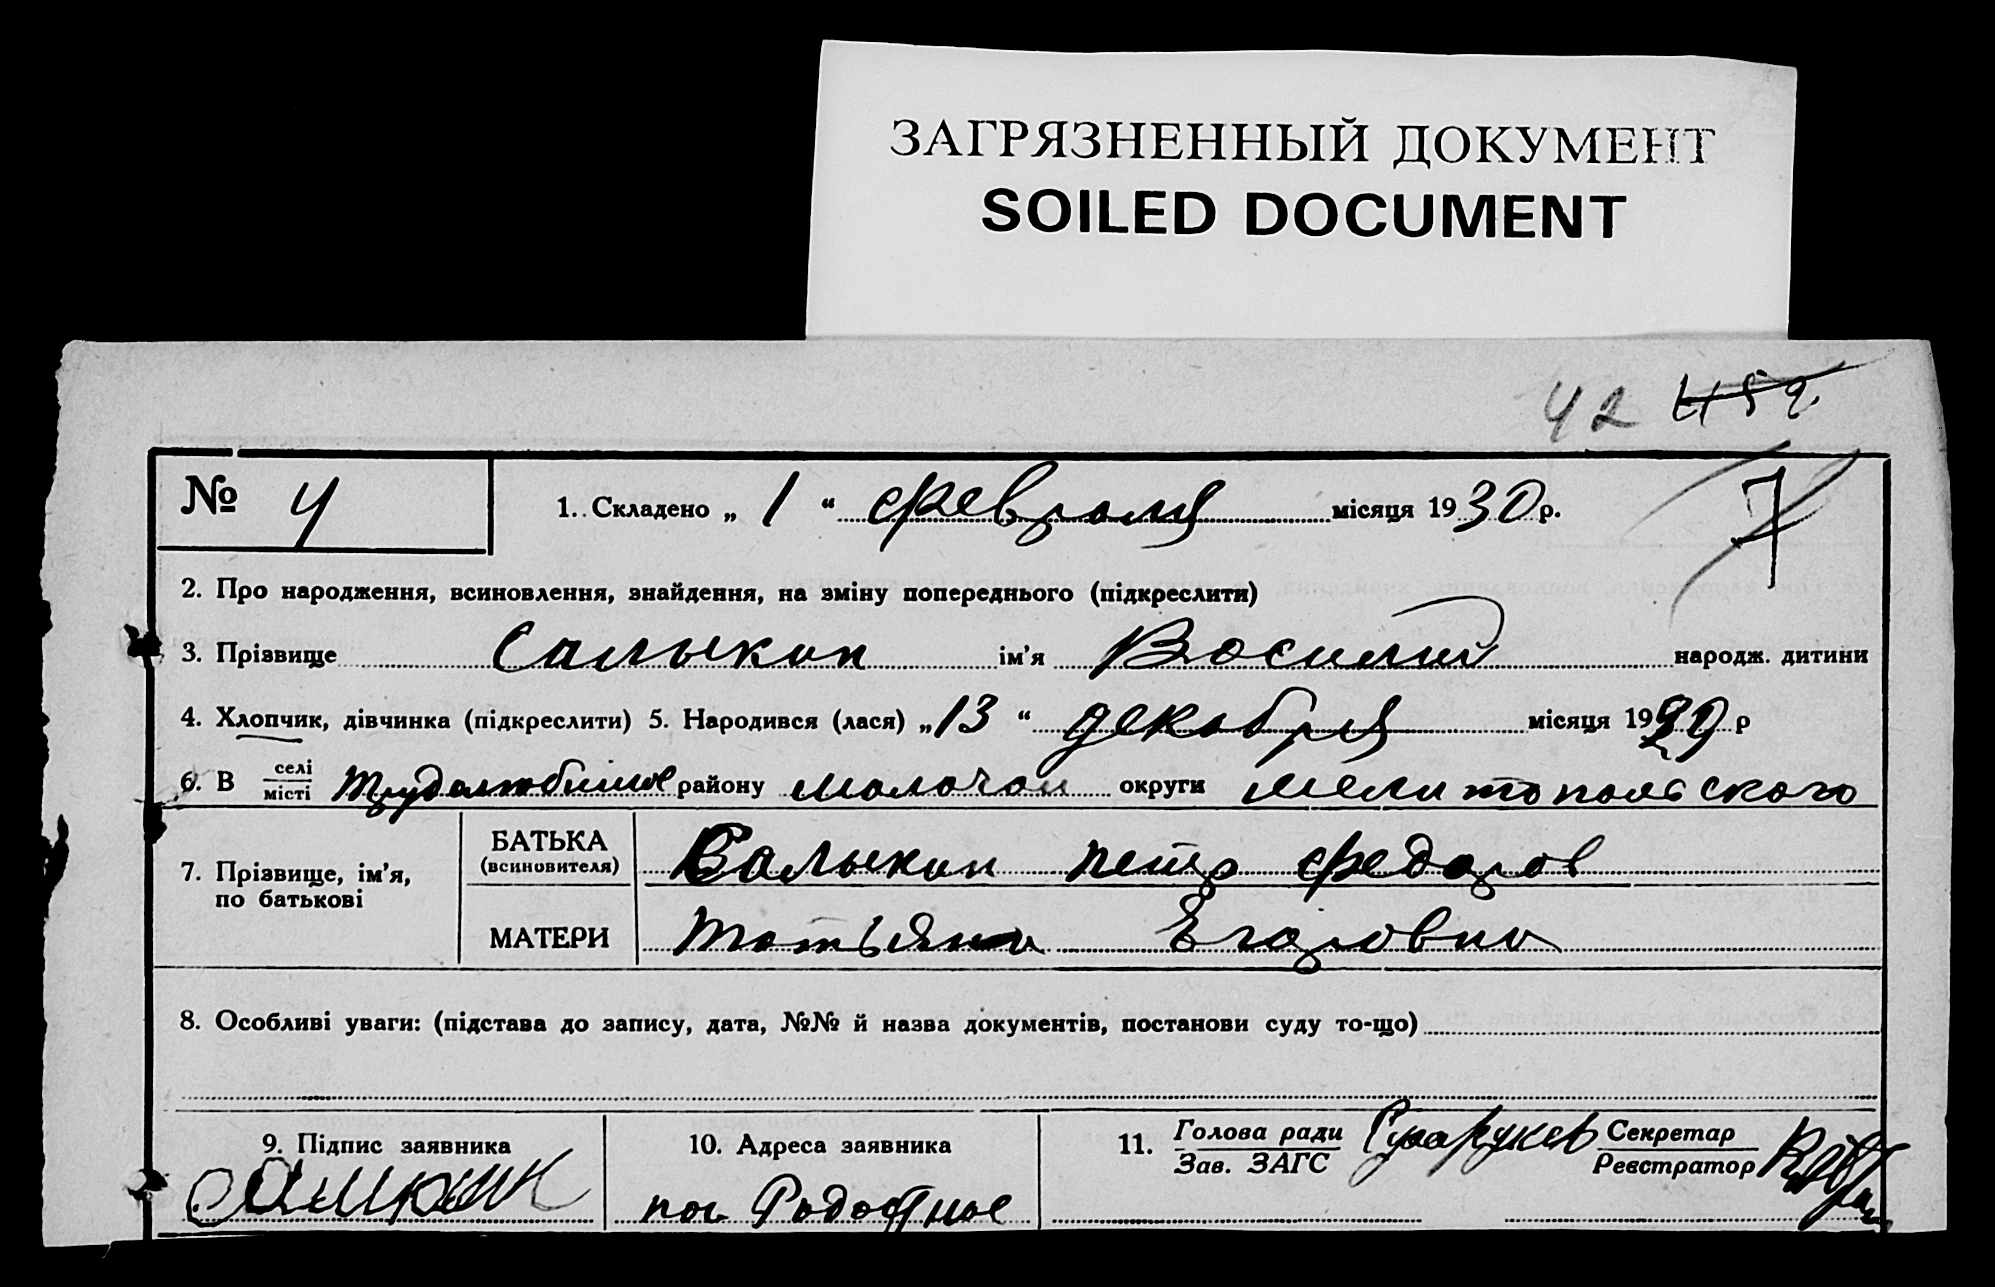 ЗАГРЯЗНЕННЫЙ ДОКУМЕНТ
SOILED DOCUMENT
42 459
№ 4
1. Складено „ 1 “ февраля місяця 1930 р. 7
2. Про народження, всиновлення, знайдення, на зміну попереднього (підкреслити)
3. Прізвище Салыкин ім’я Восилий народж. дитини
4. Хлопчик, дівчинка (підкреслити) 5. Народився (лася) „13 “ декабря місяця 1929 р
6. В селі
місті Трудолюбимое району Молочан округи Мелитопольского
7. Прізвище, ім’я,
по батькові
БАТЬКА
(всиновителя) Салыкин петр федоров
МАТЕРИ Татьяна Егоровна
8. Особливі уваги: (підстава до запису, дата, №№ й назва документів, постанови суду то-що)
9. Підпис заявника
10. Адреса заявника
пос
11. Голова ради
Зав. ЗАГС
Секретар
Реєстратор